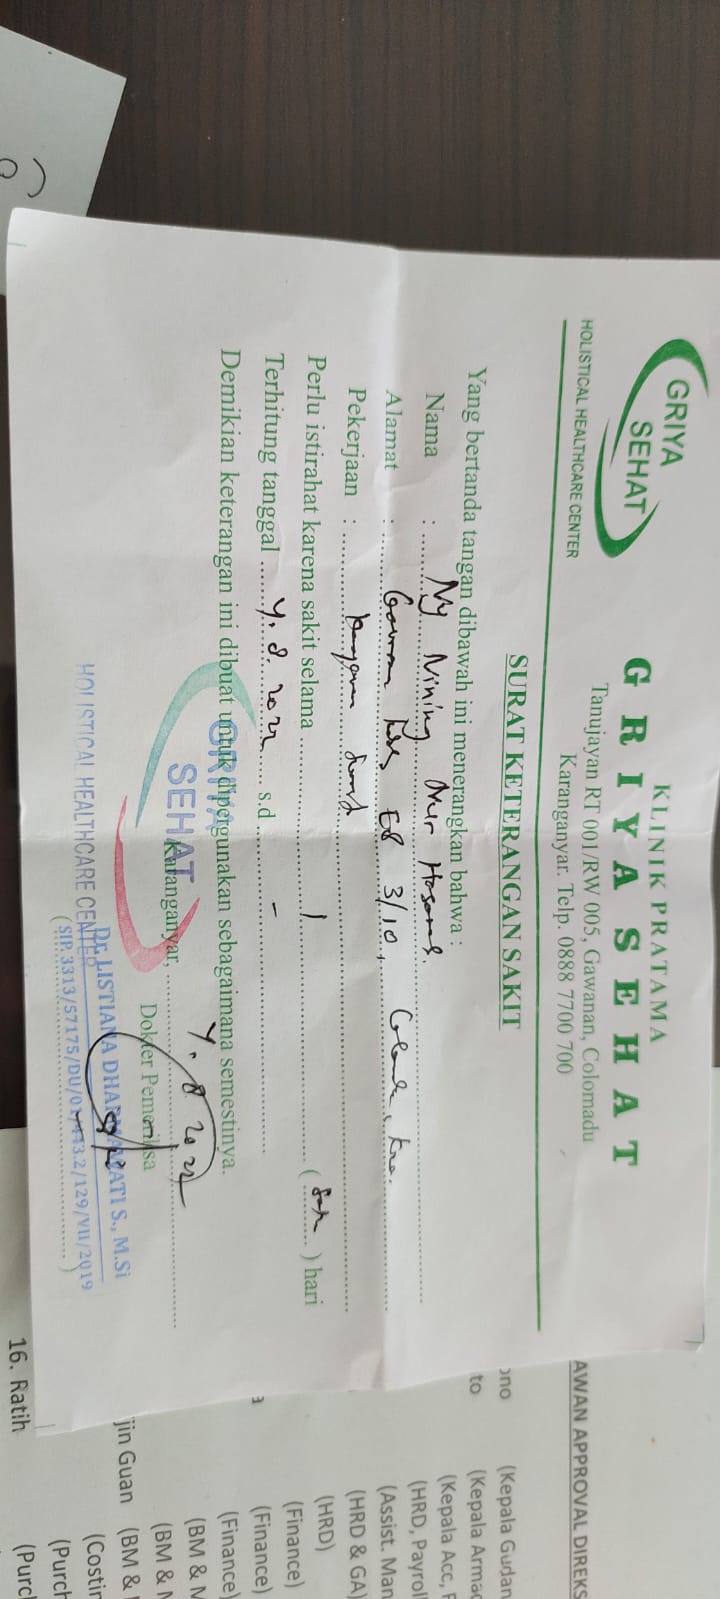 GRIYA
SEHAT
HOLISTICAL HEALTHCARE CENTER
KLINIK PRATAMA
GRIYA SEHAT
Tanujayan RT 001/RW 005, Gawanan, Colomadu
Karanganyar. Telp. 0888 7700 700
SURAT KETERANGAN SAKIT
Yang bertanda tangan dibawah ini menerangkan bahwa :
Nama : Ny Nining Nur Hasanah
Alamat : Gawanan 3/10,
Pekerjaan :
Perlu istirahat karena sakit selama 1 ( ) hari
Terhitung tanggal 4.8.2022 s.d -
Demikian keterangan ini dibuat untuk dipergunakan sebagaimana semestinya.
Karanganyar, 4.8 2022
Dokter Pemeriksa
GRIYA
SEHAT
HOLISTICAL HEALTHCARE CENTER
Dr. LISTIANA S., M.Si
(SIP.3313/57175/DU/ /129/VII/2019)
AWAN APPROVAL DIREKS
ono (Kepala Gudan
to (Kepala Armad
(Kepala Acc, F
(HRD, Payrol
(Assist. Man
(HRD & GA)
(HRD)
(Finance)
(Finance)
(Finance)
(BM & M
(BM & M
jin Guan (BM &
(Costin
(Purch
16. Ratih (Purcl